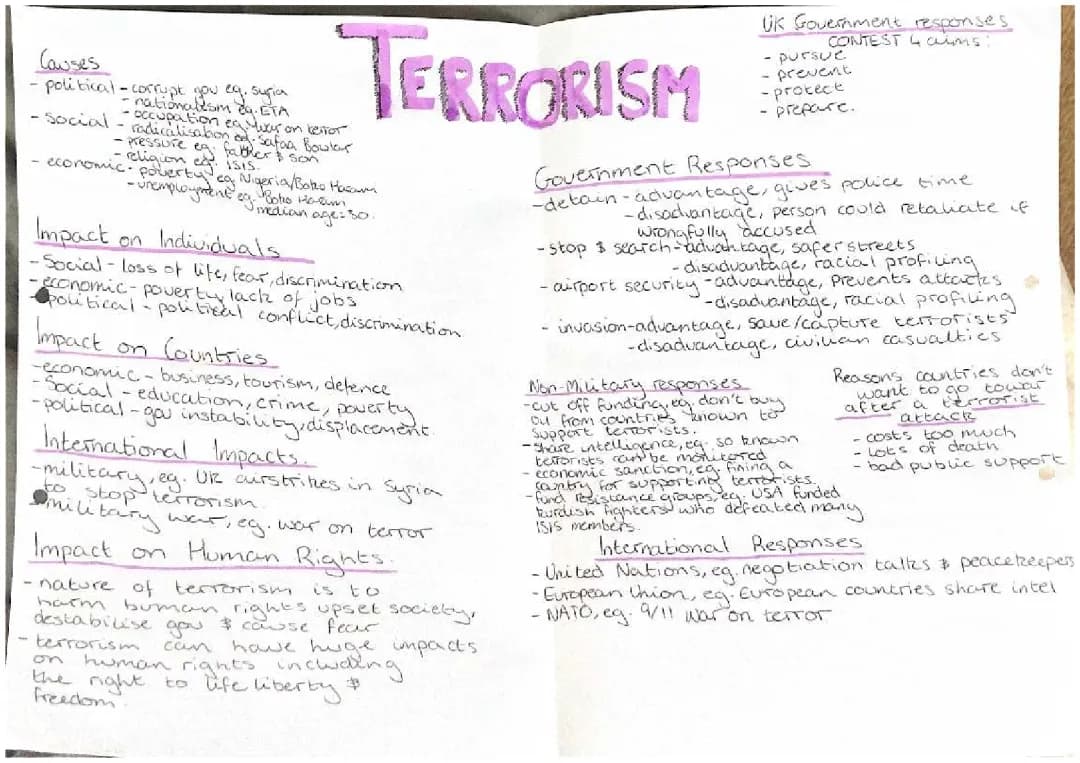 TERRORISM
Causes
- political - corrupt gov eg. Syria
- nationalism eg. ETA
- occupation eg. war on terror
- social - radicalisation eg. Safaa Boular
- pressure eg. father & son
- religion eg. ISIS.
- economic - poverty eg. Nigeria/Boko Haram
- unemployment eg. Boko Haram
median age = 30.
Impact on Individuals
- Social - loss of life, fear, discrimination
- economic - poverty, lack of jobs
political - political conflict, discrimination
Impact on Countries
- economic - business, tourism, defence
- Social - education, crime, poverty
- political - gov instability, displacement.
International Impacts.
- military, eg. UK airstrikes in Syria
to stop terrorism.
military war, eg. war on terror
Impact on Human Rights.
- nature of terrorism is to
harm human rights upset society,
destabilise gov & cause fear
- terrorism can have huge impacts
on human rights including
the right to life liberty &
freedom.
UK Government responses
CONTEST 4 aims:
- pursue
- prevent
- protect
- prepare.
Government Responses
- detain - advantage, gives police time
- disadvantage, person could retaliate if
wrongfully accused
- stop & search - advantage, safer streets
- disadvantage, racial profiling
- airport security - advantage, prevents attacks
- disadvantage, racial profiling
- invasion - advantage, save/capture terrorists
- disadvantage, civilian casualties
Non-Military responses
- cut off funding, eg. don't buy
oil from countries known to
support terrorists.
- share intelligence, eg. so known
terrorists can be monitored
- economic sanction, eg. fining a
country for supporting terrorists.
- fund resistance groups, eg. USA funded
kurdish fighters who defeated many
ISIS members.
Reasons countries don't
want to go to war
after a terrorist
attack
- costs too much
- lots of death
- bad public support
International Responses
- United Nations, eg. negotiation talks & peacekeepers
- European Union, eg. European countries share intel
- NATO, eg. 9/11 war on terror